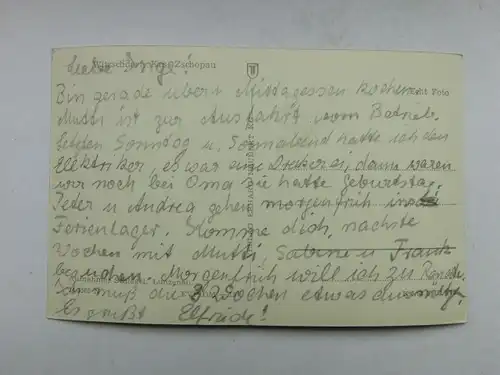 Liebe Inge!
Zschopau
Bin gerade überm Mittagessen kochen
Foto
Mutti ist zur Ausfahrt vom Betrieb.
Letzten Sonntag u. Sonnabend hatte ich den
Elektriker, es war eine Dreckerei, dann waren
wir noch bei Oma sie hatte Geburtstag.
Peter u Andrea gehen morgenfrüh ins
Ferienlager. Komme dich, nächste
Wochen mit Mutti, Sabine u Frank
besuchen. Morgenfrüh will ich zu
muß die Wochen etwas
Es grüßt Elfriede!